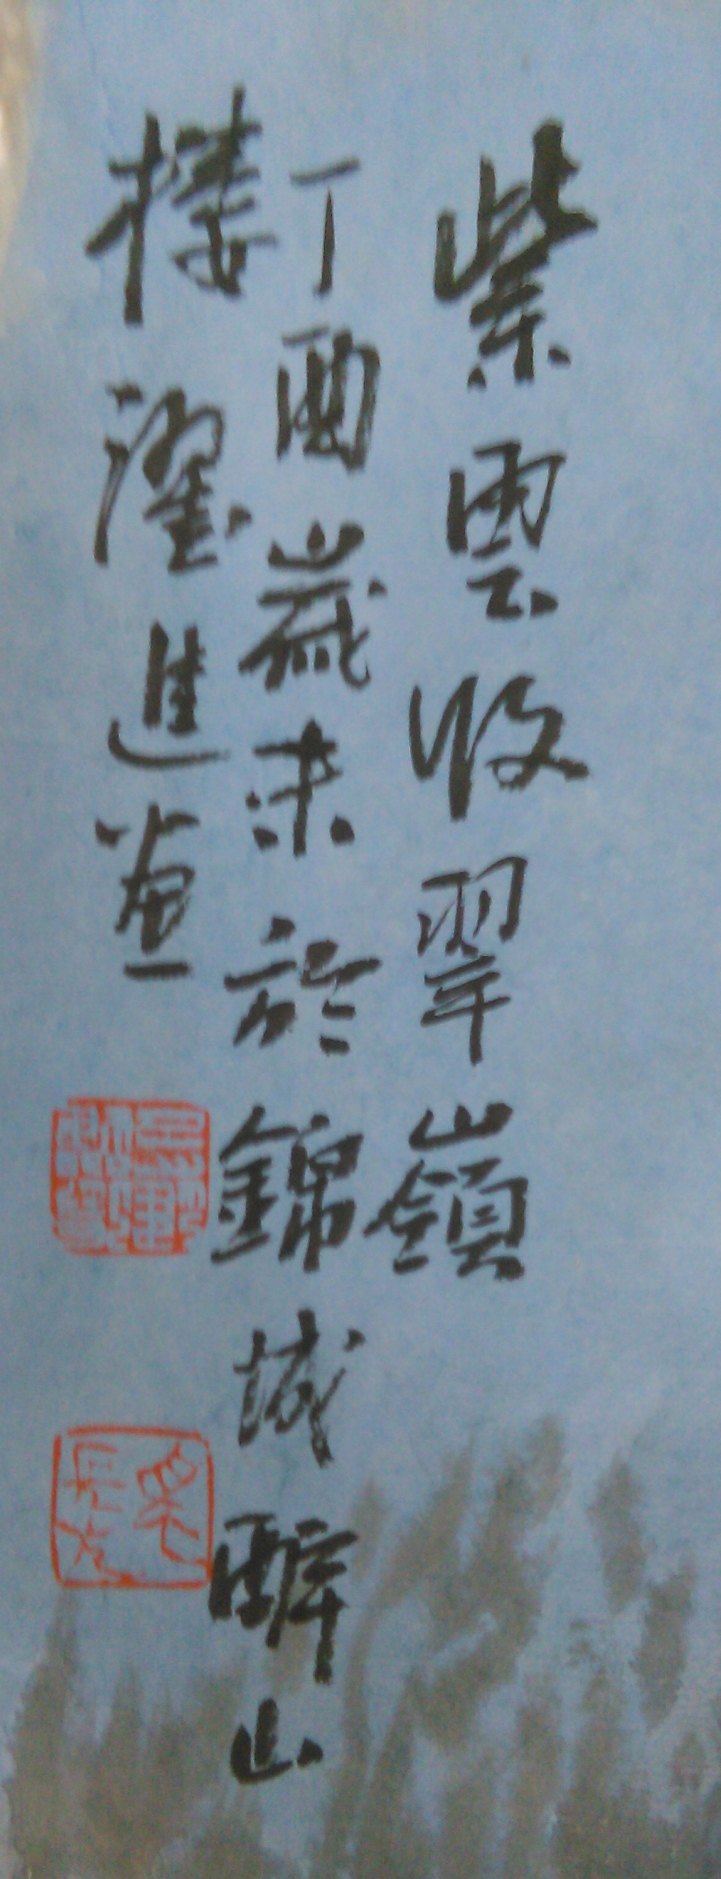 紫雲收翠嶺
丁酉歲末於錦城醉山
樓濯進畫